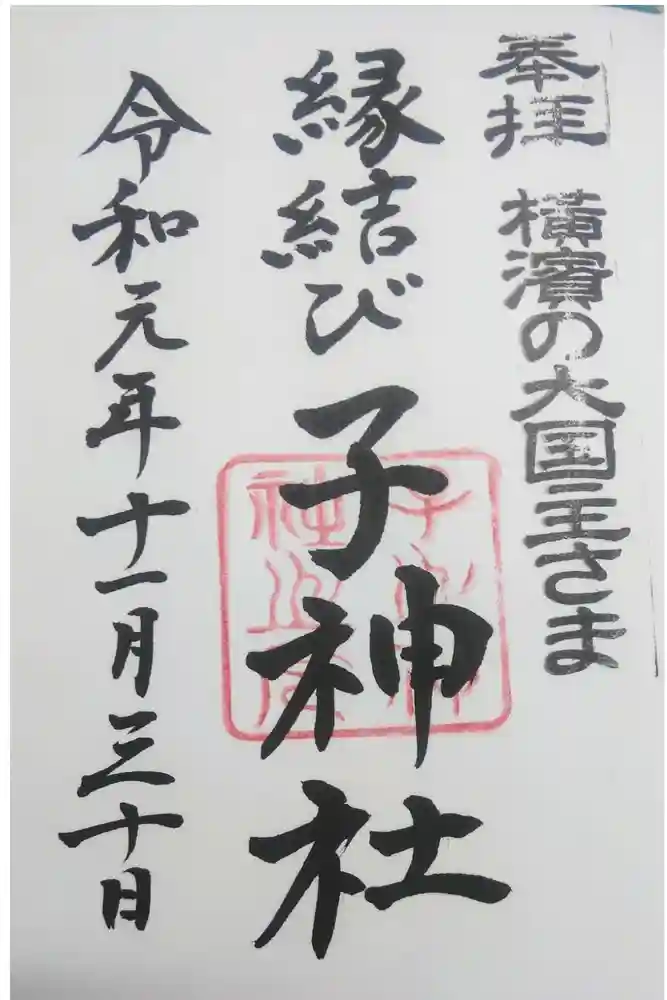 奉拝 横濱の大国主さま
縁結び 子神社
令和元年十一月三十日